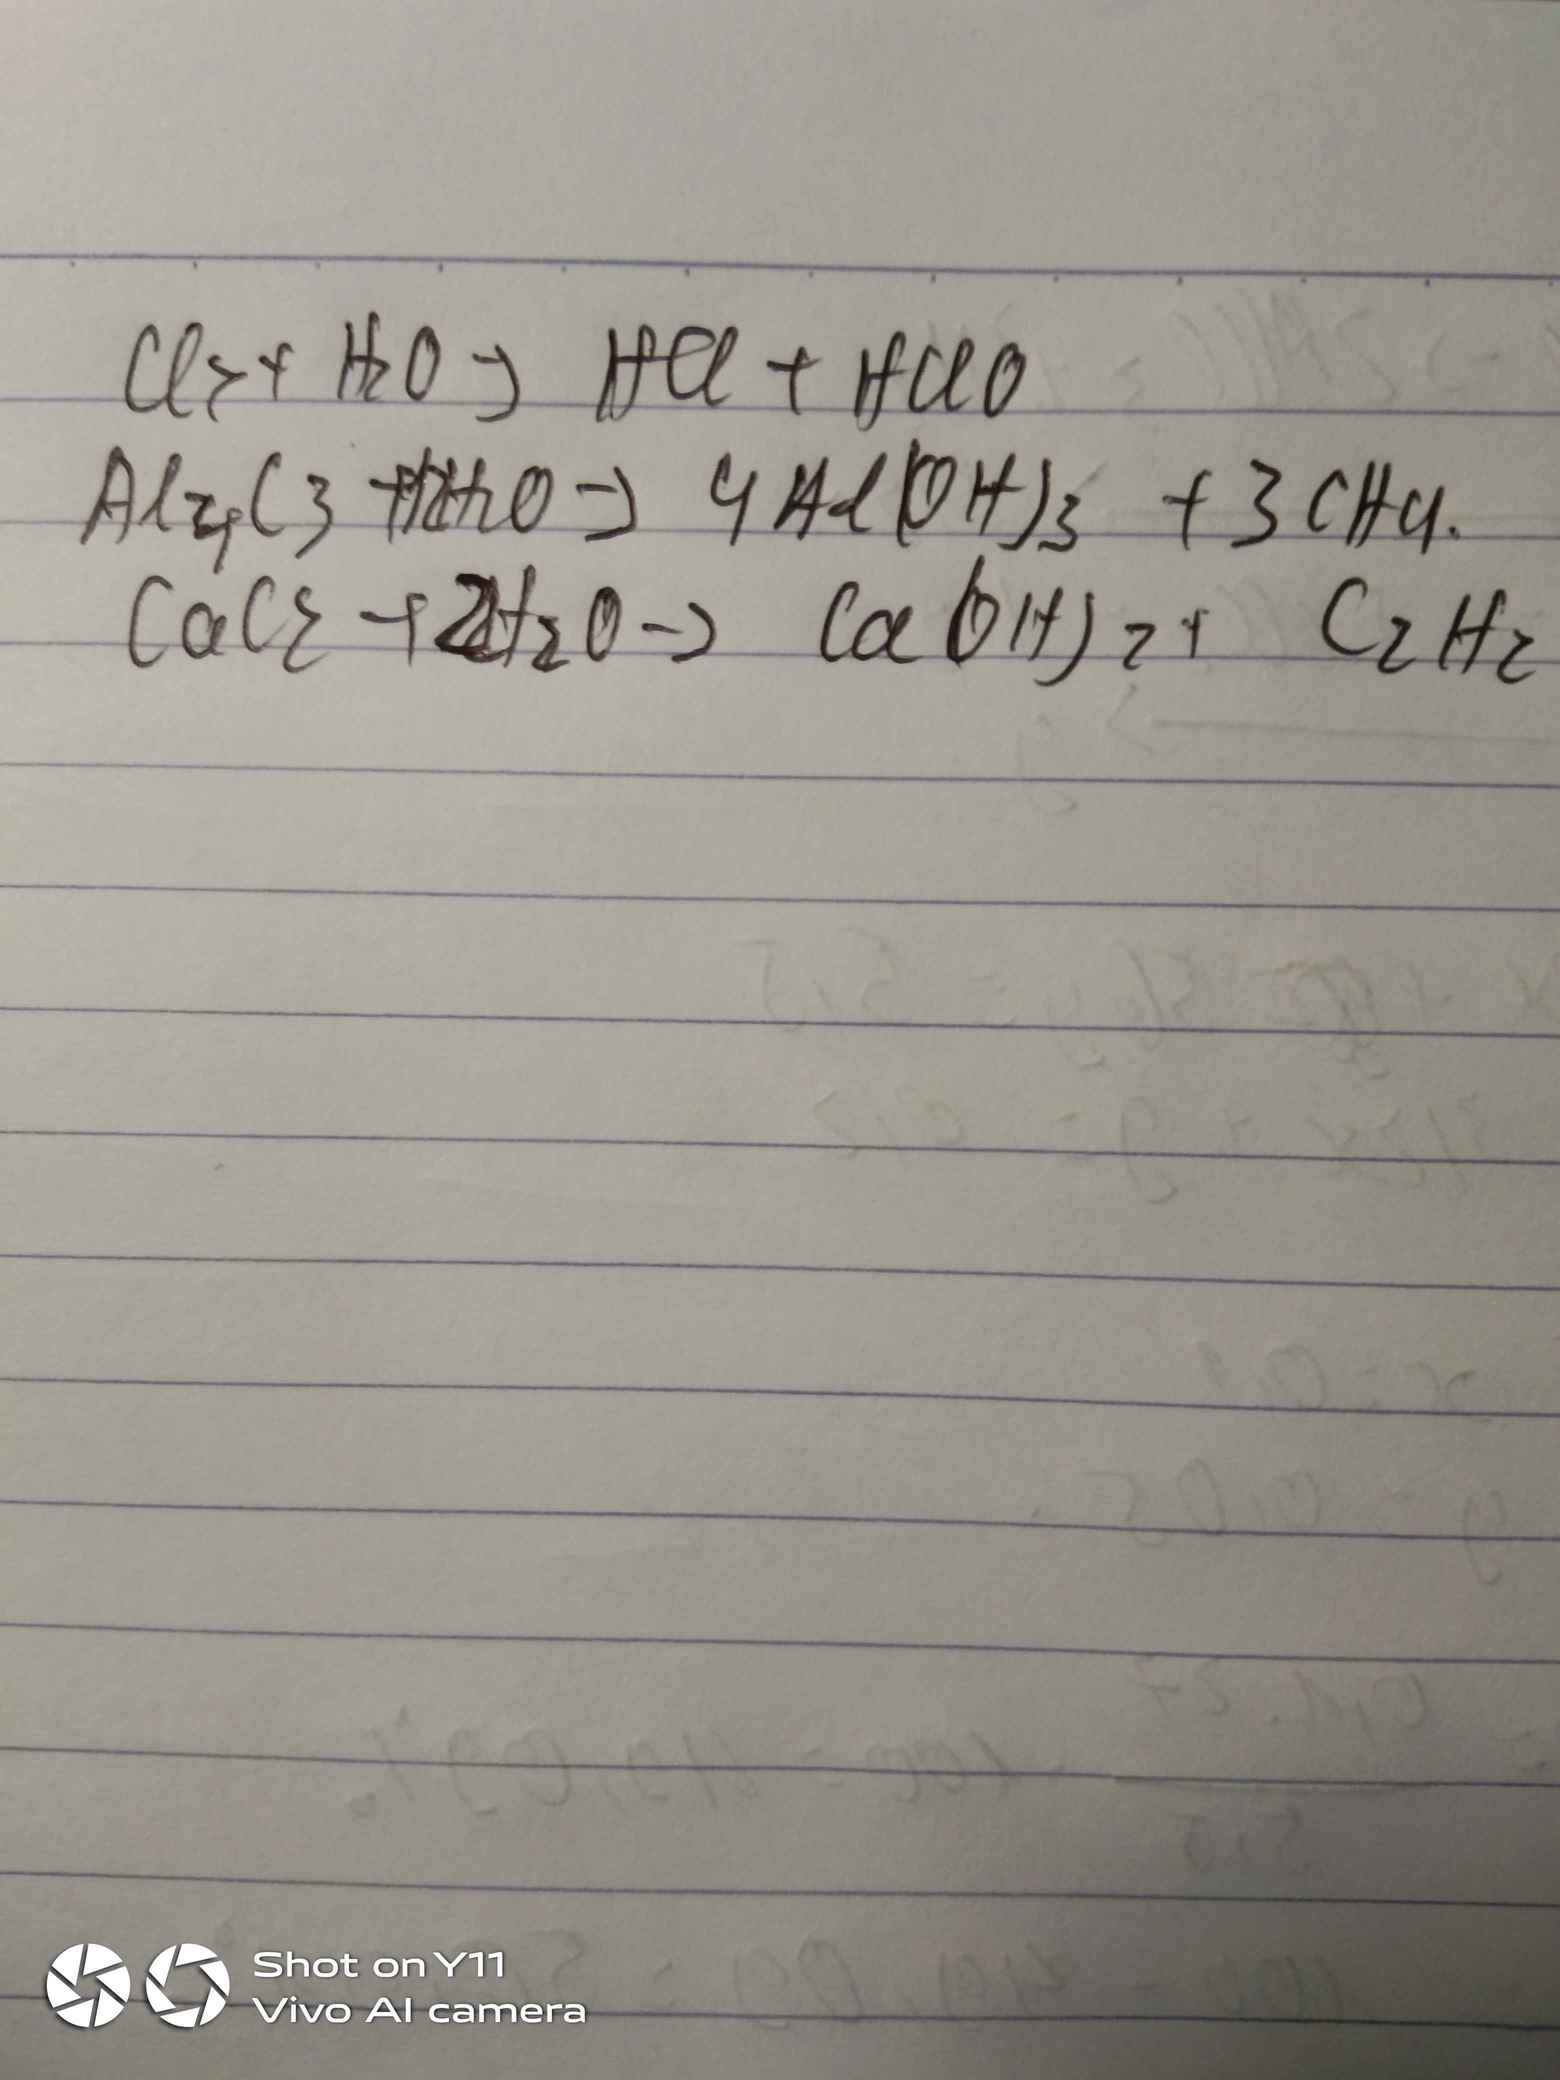 Cl2 + H2O → HCl + HClO
Al4C3 + 12H2O → 4Al(OH)3 + 3CH4.
CaC2 + 2H2O → Ca(OH)2 + C2H2
Shot on Y11
Vivo AI camera